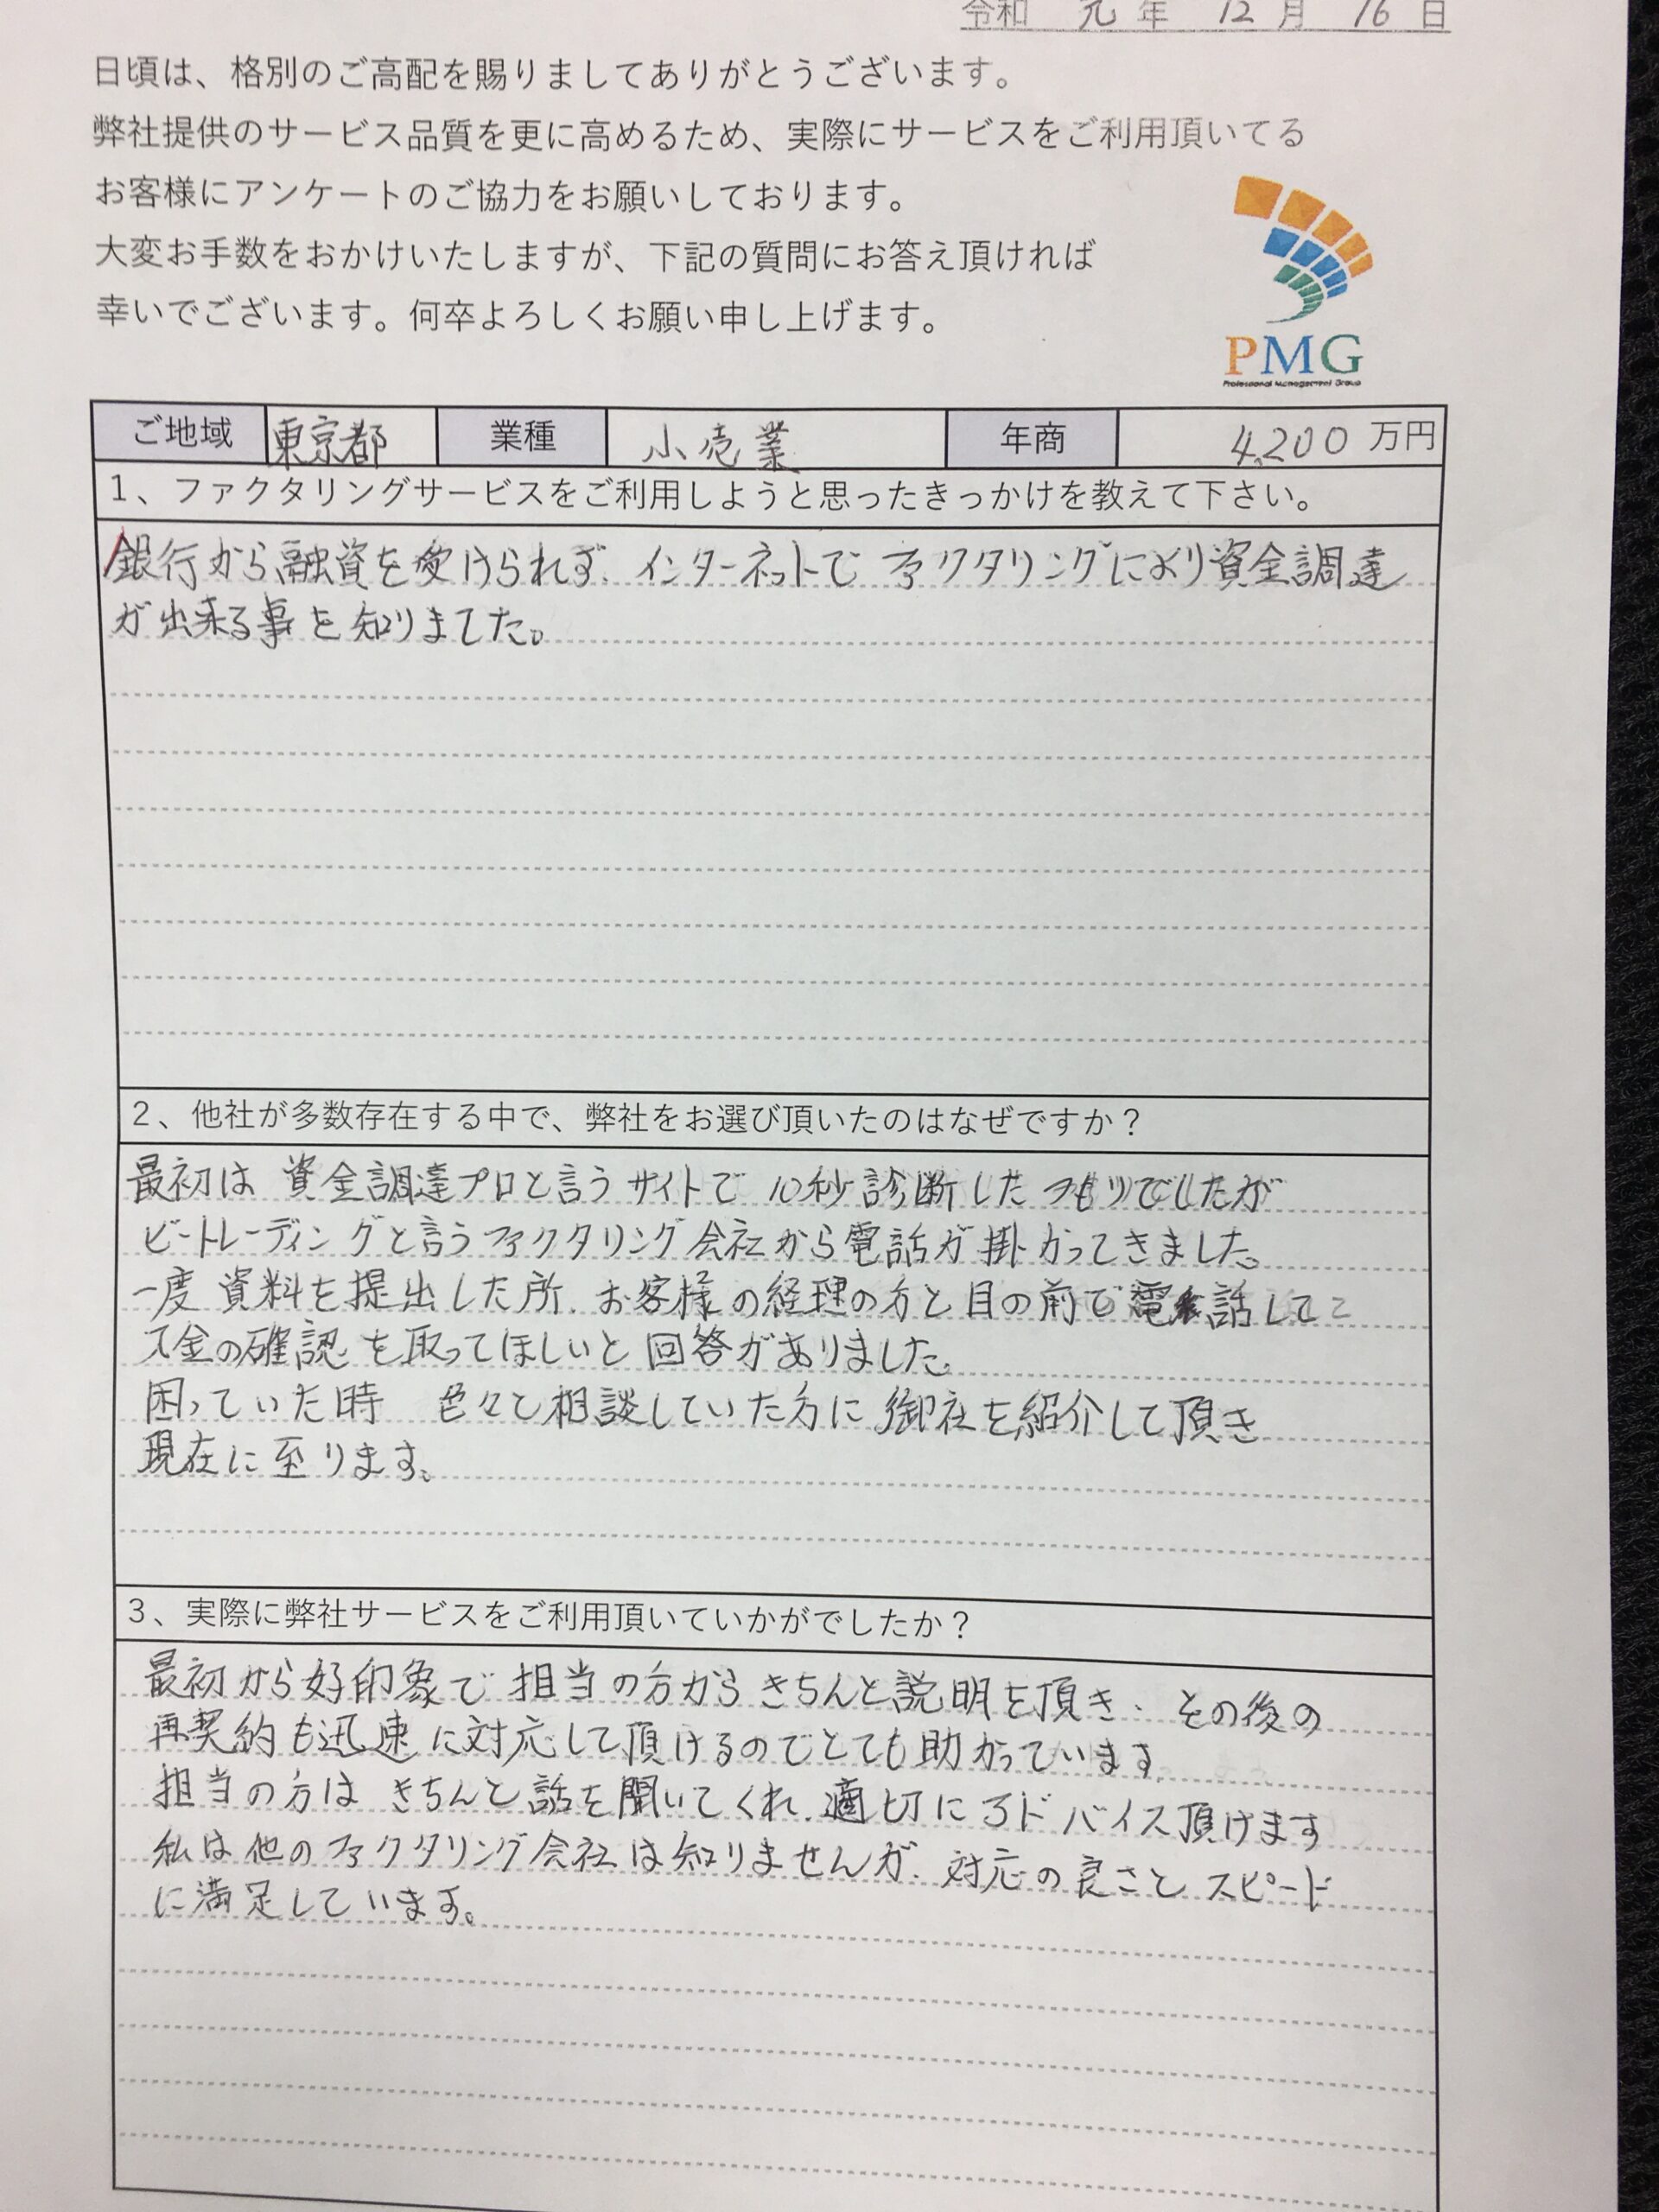 令和 元 年 12 月 16 日
日頃は、格別のご高配を賜りましてありがとうございます。
弊社提供のサービス品質を更に高めるため、実際にサービスをご利用頂いてる
お客様にアンケートのご協力をお願いしております。
大変お手数をおかけいたしますが、下記の質問にお答え頂ければ
幸いでございます。何卒よろしくお願い申し上げます。
PMG
Professional Management Group
ご地域 東京都 業種 小売業 年商 4,200 万円
1、ファクタリングサービスをご利用しようと思ったきっかけを教えて下さい。
銀行から融資を受けられず、インターネットで ファクタリングにより資金調達
が出来る事を知りました。
2、他社が多数存在する中で、弊社をお選び頂いたのはなぜですか？
最初は 資金調達プロと言うサイトで 10秒診断したつもりでしたが
ビートレーディングと言うファクタリング会社から電話が掛かってきました。
一度 資料を提出した所、お客様の経理の方と目の前で電話して
入金の確認を取ってほしいと回答がありました。
困っていた時 色々と相談していた方に 御社を紹介して頂き
現在に至ります。
3、実際に弊社サービスをご利用頂いていかがでしたか？
最初から好印象で 担当の方からきちんと説明を頂き、その後の
再契約も迅速に対応して頂けるのでとても助かっています。
担当の方は きちんと話を聞いてくれ、適切にアドバイス頂けます
私は他のファクタリング会社は知りませんが、対応の良さとスピード
に満足しています。